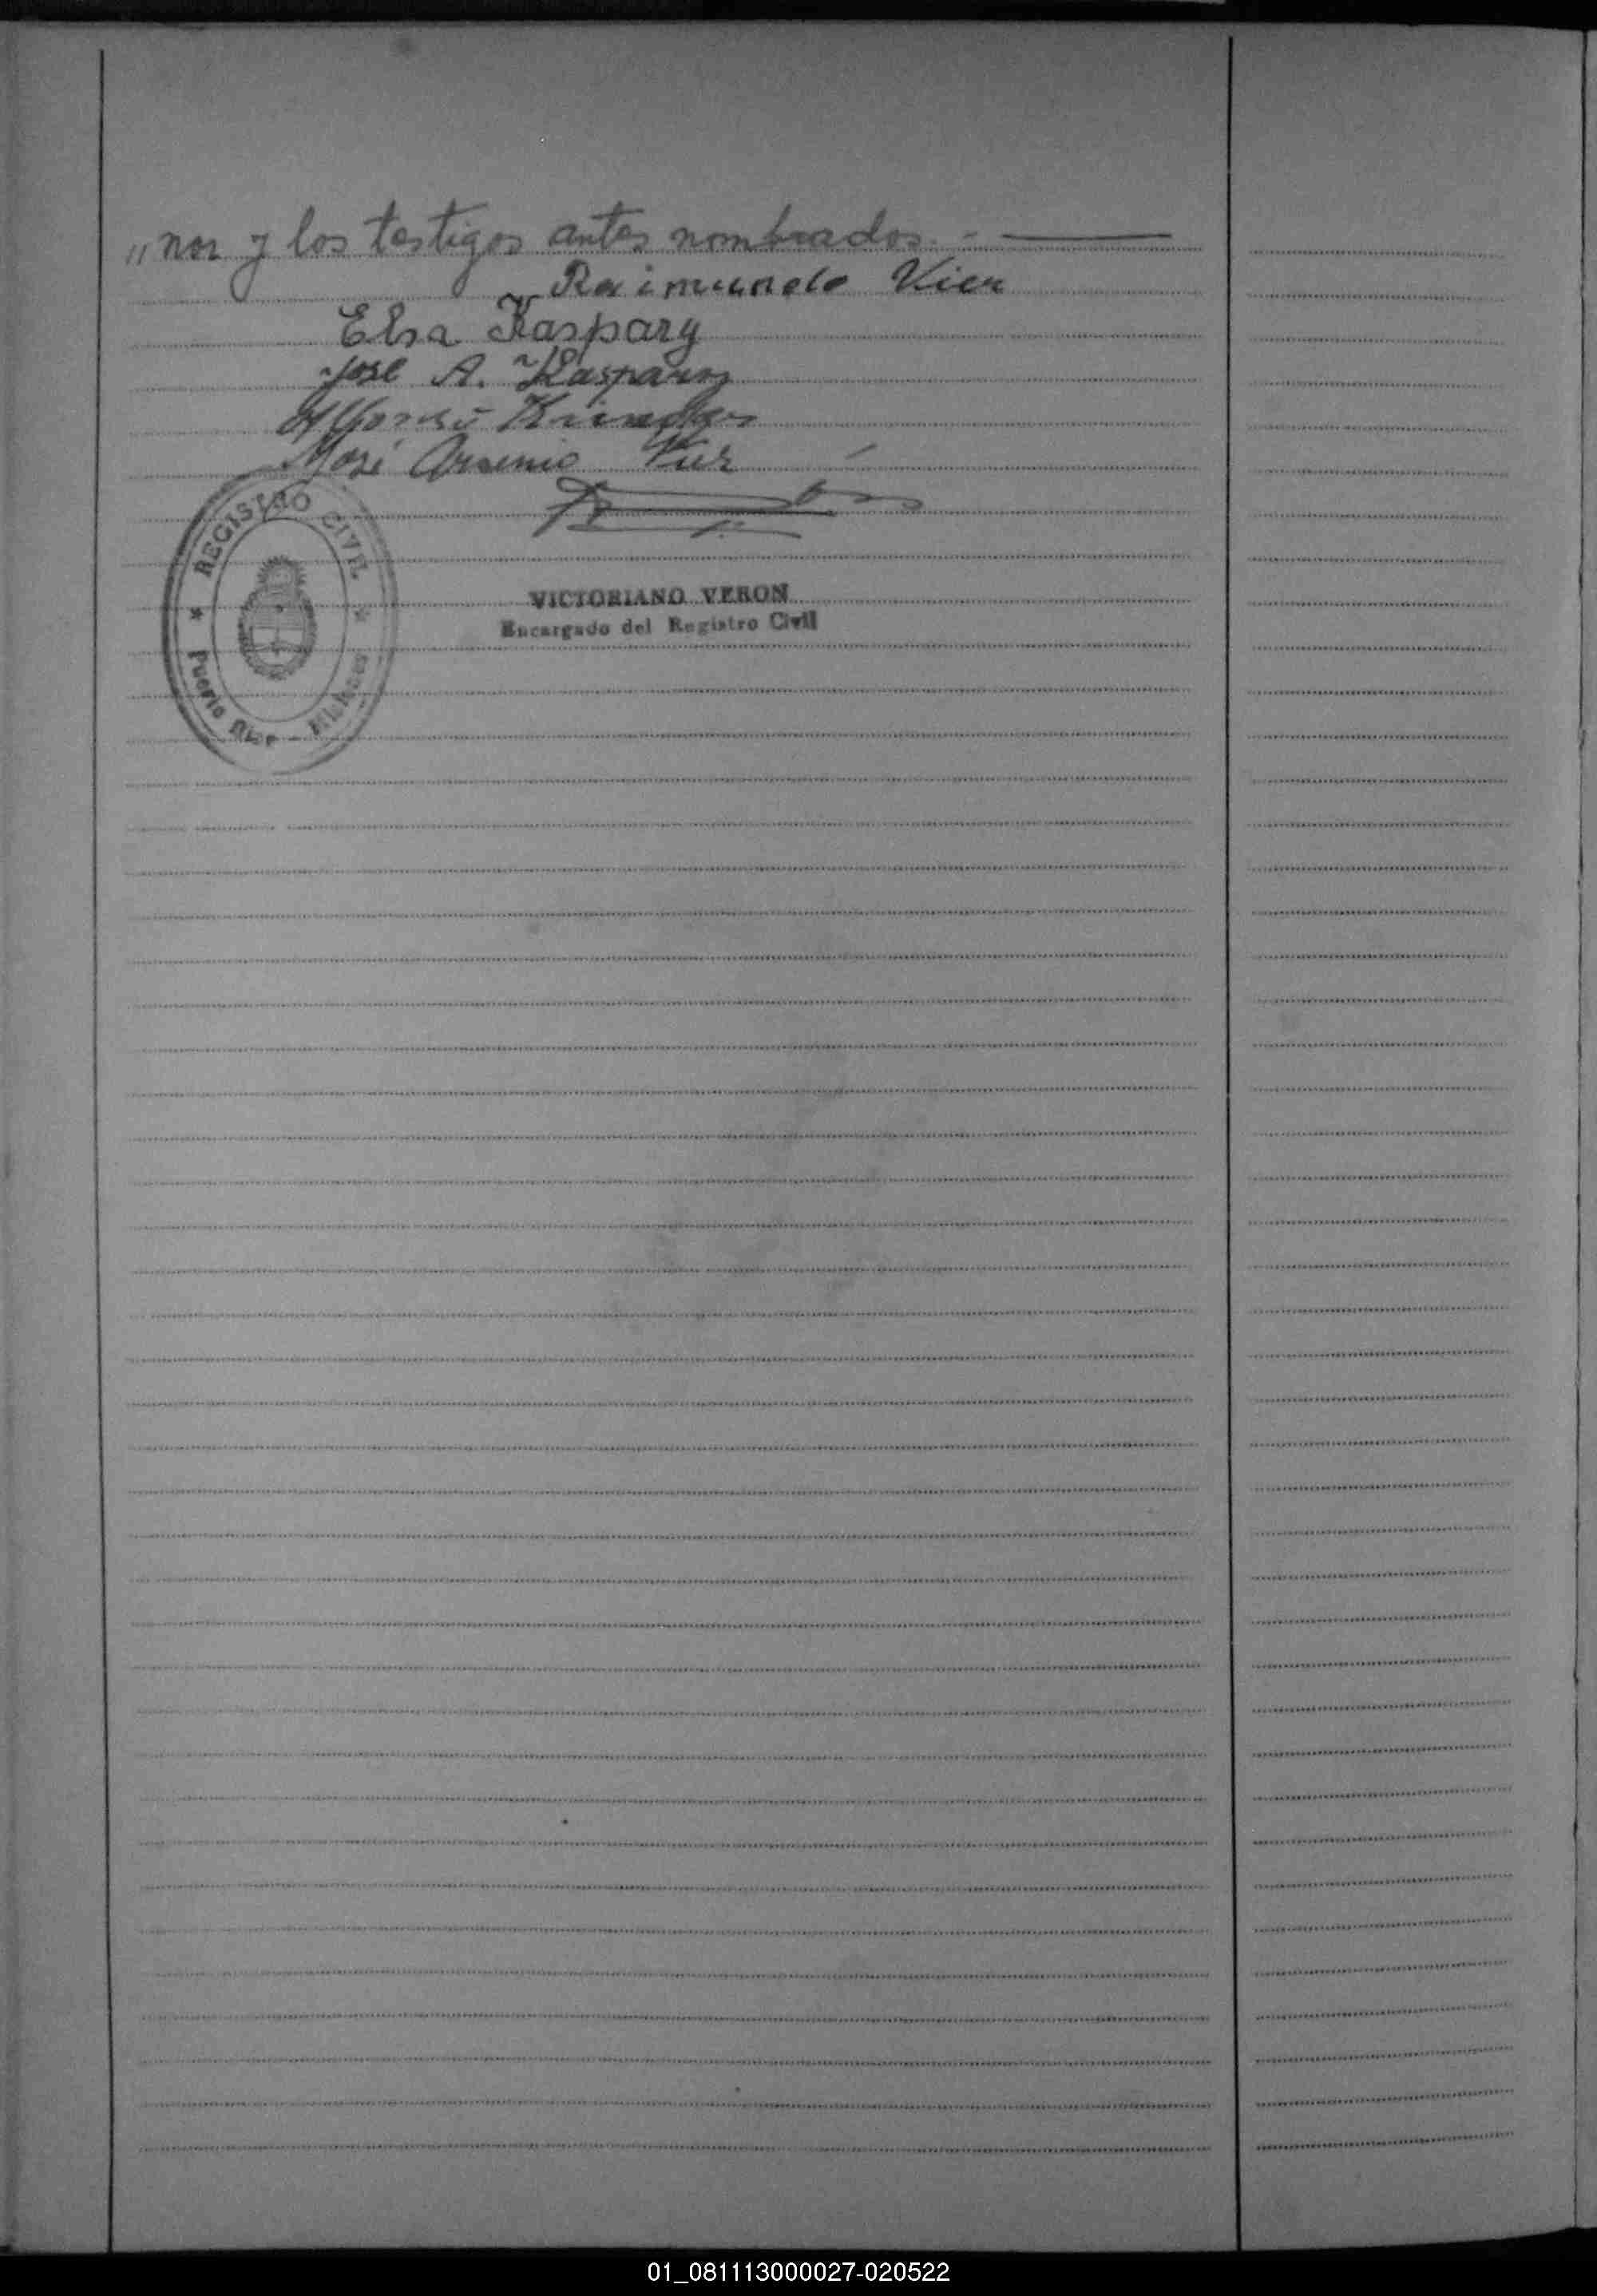 "nor y los testigos antes nombrados. -
Raimundo Vier
Elsa Kaspary
José A. Kaspary
Alfonso
José Arsenio Vier
REGISTRO CIVIL
Puerto Rico - Misiones
VICTORIANO VERON
Encargado del Registro Civil
01_081113000027-020522